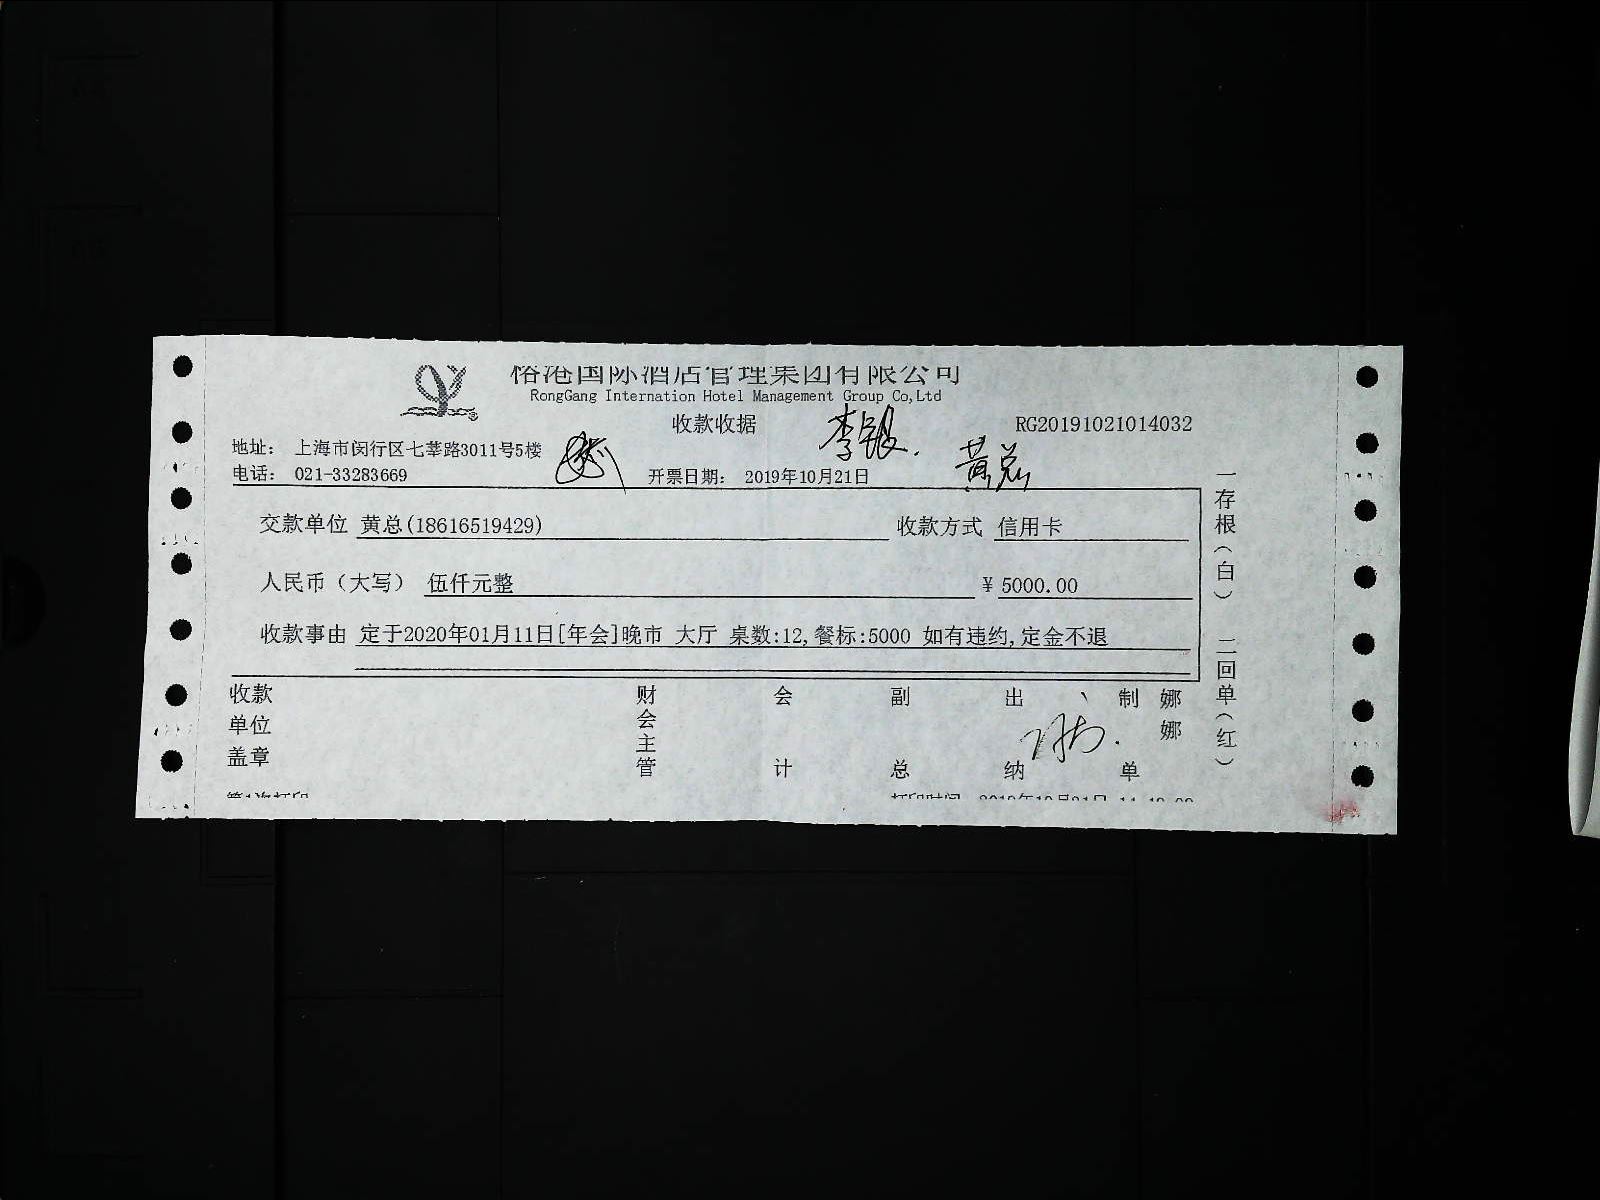 国际酒店管理集团有限公司
RongGang Internation Hotel Management Group Co,Ltd
收款收据
李银.
RG20191021014032
地址: 上海市闵行区七莘路3011号5楼
黄总
电话: 021-33283669
开票日期: 2019年10月21日
交款单位 黄总(18616519429)
收款方式 信用卡
人民币（大写） 伍仟元整
¥ 5000.00
收款事由 定于2020年01月11日[年会]晚市 大厅 桌数:12,餐标:5000 如有违约,定金不退
一存根（白） 二回单（红）
收款单位盖章
财会主管
会计
副总
出纳
制单
娜娜
第1次打印
打印时间